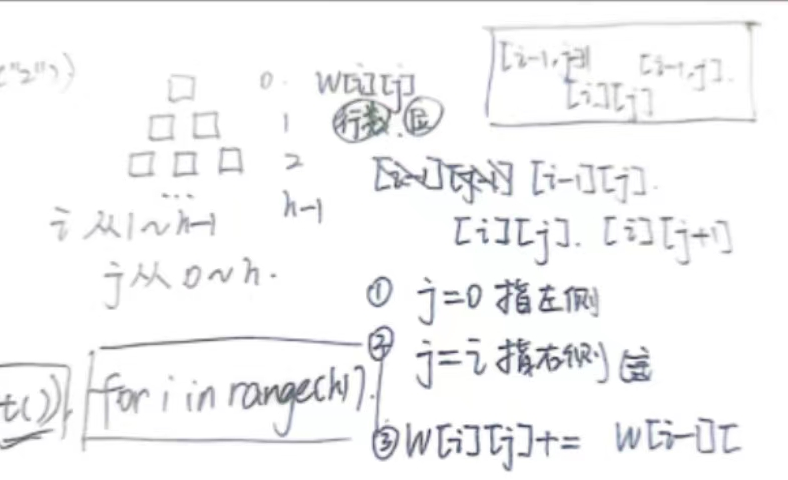 ("2"))
0. W[i][j]
行数. 位
[i-1, j-1] [i-1, j].
[i][j]
1
2
h-1
[i-1][j-1] [i-1][j].
[i][j]. [i][j+1]
...
i 从1~h-1
j从0~h.
① j=0 指左侧
② j=i 指右侧
t())
for i in range(h).
③ W[i][j]+= W[i-1][